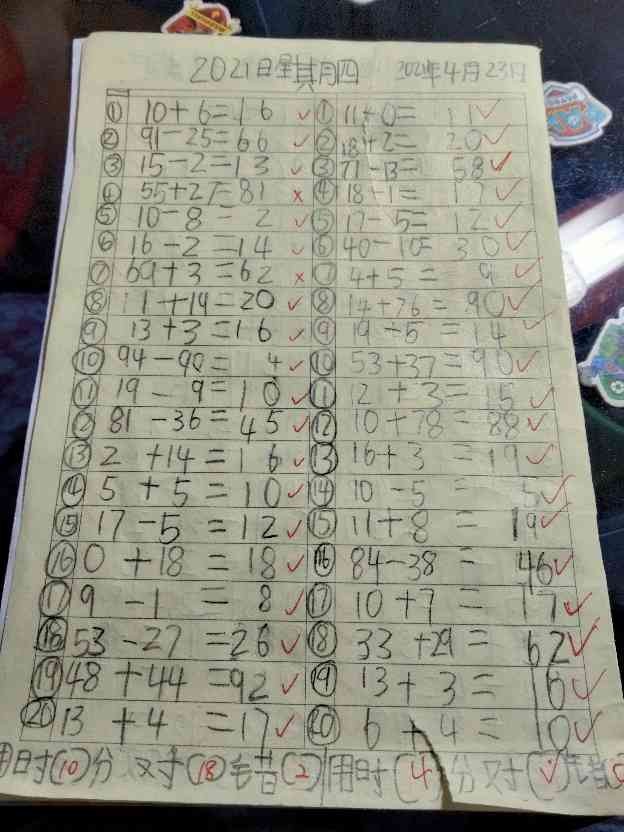 2021日星其月四 2021年4月23日
① 10+6=16 ✓ ① 11+0= 11 ✓
② 91-25=66 ✓ ② 18+2= 20 ✓
③ 15-2=13 ✓ ③ 71-13= 58 ✓
④ 55+27=81 × ④ 18-1= 17 ✓
⑤ 10-8= 2 ✓ ⑤ 17-5= 12 ✓
⑥ 16-2=14 ✓ ⑥ 40-10= 30 ✓
⑦ 69+3=62 × ⑦ 4+5= 9 ✓
⑧ 11+14=20 ✓ ⑧ 14+76= 90 ✓
⑨ 13+3=16 ✓ ⑨ 19-5=14 ✓
⑩ 94-90= 4 ✓ ⑩ 53+37=90 ✓
⑪ 19-9=10 ✓ ⑪ 12+3=15 ✓
⑫ 81-36=45 ✓ ⑫ 10+78=88 ✓
⑬ 2+14=16 ✓ ⑬ 16+3=19 ✓
⑭ 5+5=10 ✓ ⑭ 10-5= 5 ✓
⑮ 17-5=12 ✓ ⑮ 11+8= 19 ✓
⑯ 0+18=18 ✓ ⑯ 84-38= 46 ✓
⑰ 9-1= 8 ✓ ⑰ 10+7= 17 ✓
⑱ 53-27=26 ✓ ⑱ 33+29= 62 ✓
⑲ 48+44=92 ✓ ⑲ 13+3= 16 ✓
⑳ 13+4=17 ✓ ⑳ 6+4= 10 ✓
用时(10)分 对(18)错(2) 用时(4)分 对(✓)错(0